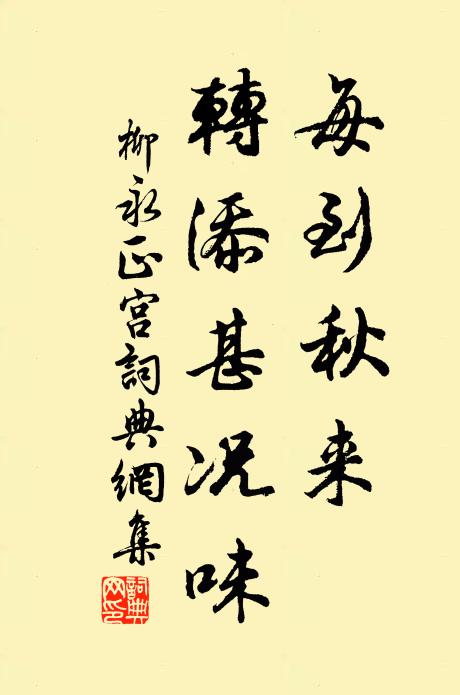 每到秋来
轉添甚况味
柳永正宫詞典網集
詞典網印